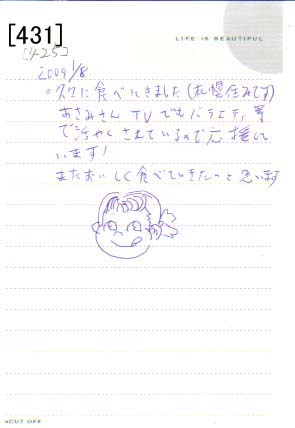 [431]
[425]
LIFE:IS BEAUTIFUL
2009 1/8
。久々に食べにきました(札幌住みです)
あさみさん TVでもバラエティ等
で活やくされているので応援して
います!
またおいしく食べていきたいと思います
CUT OFF